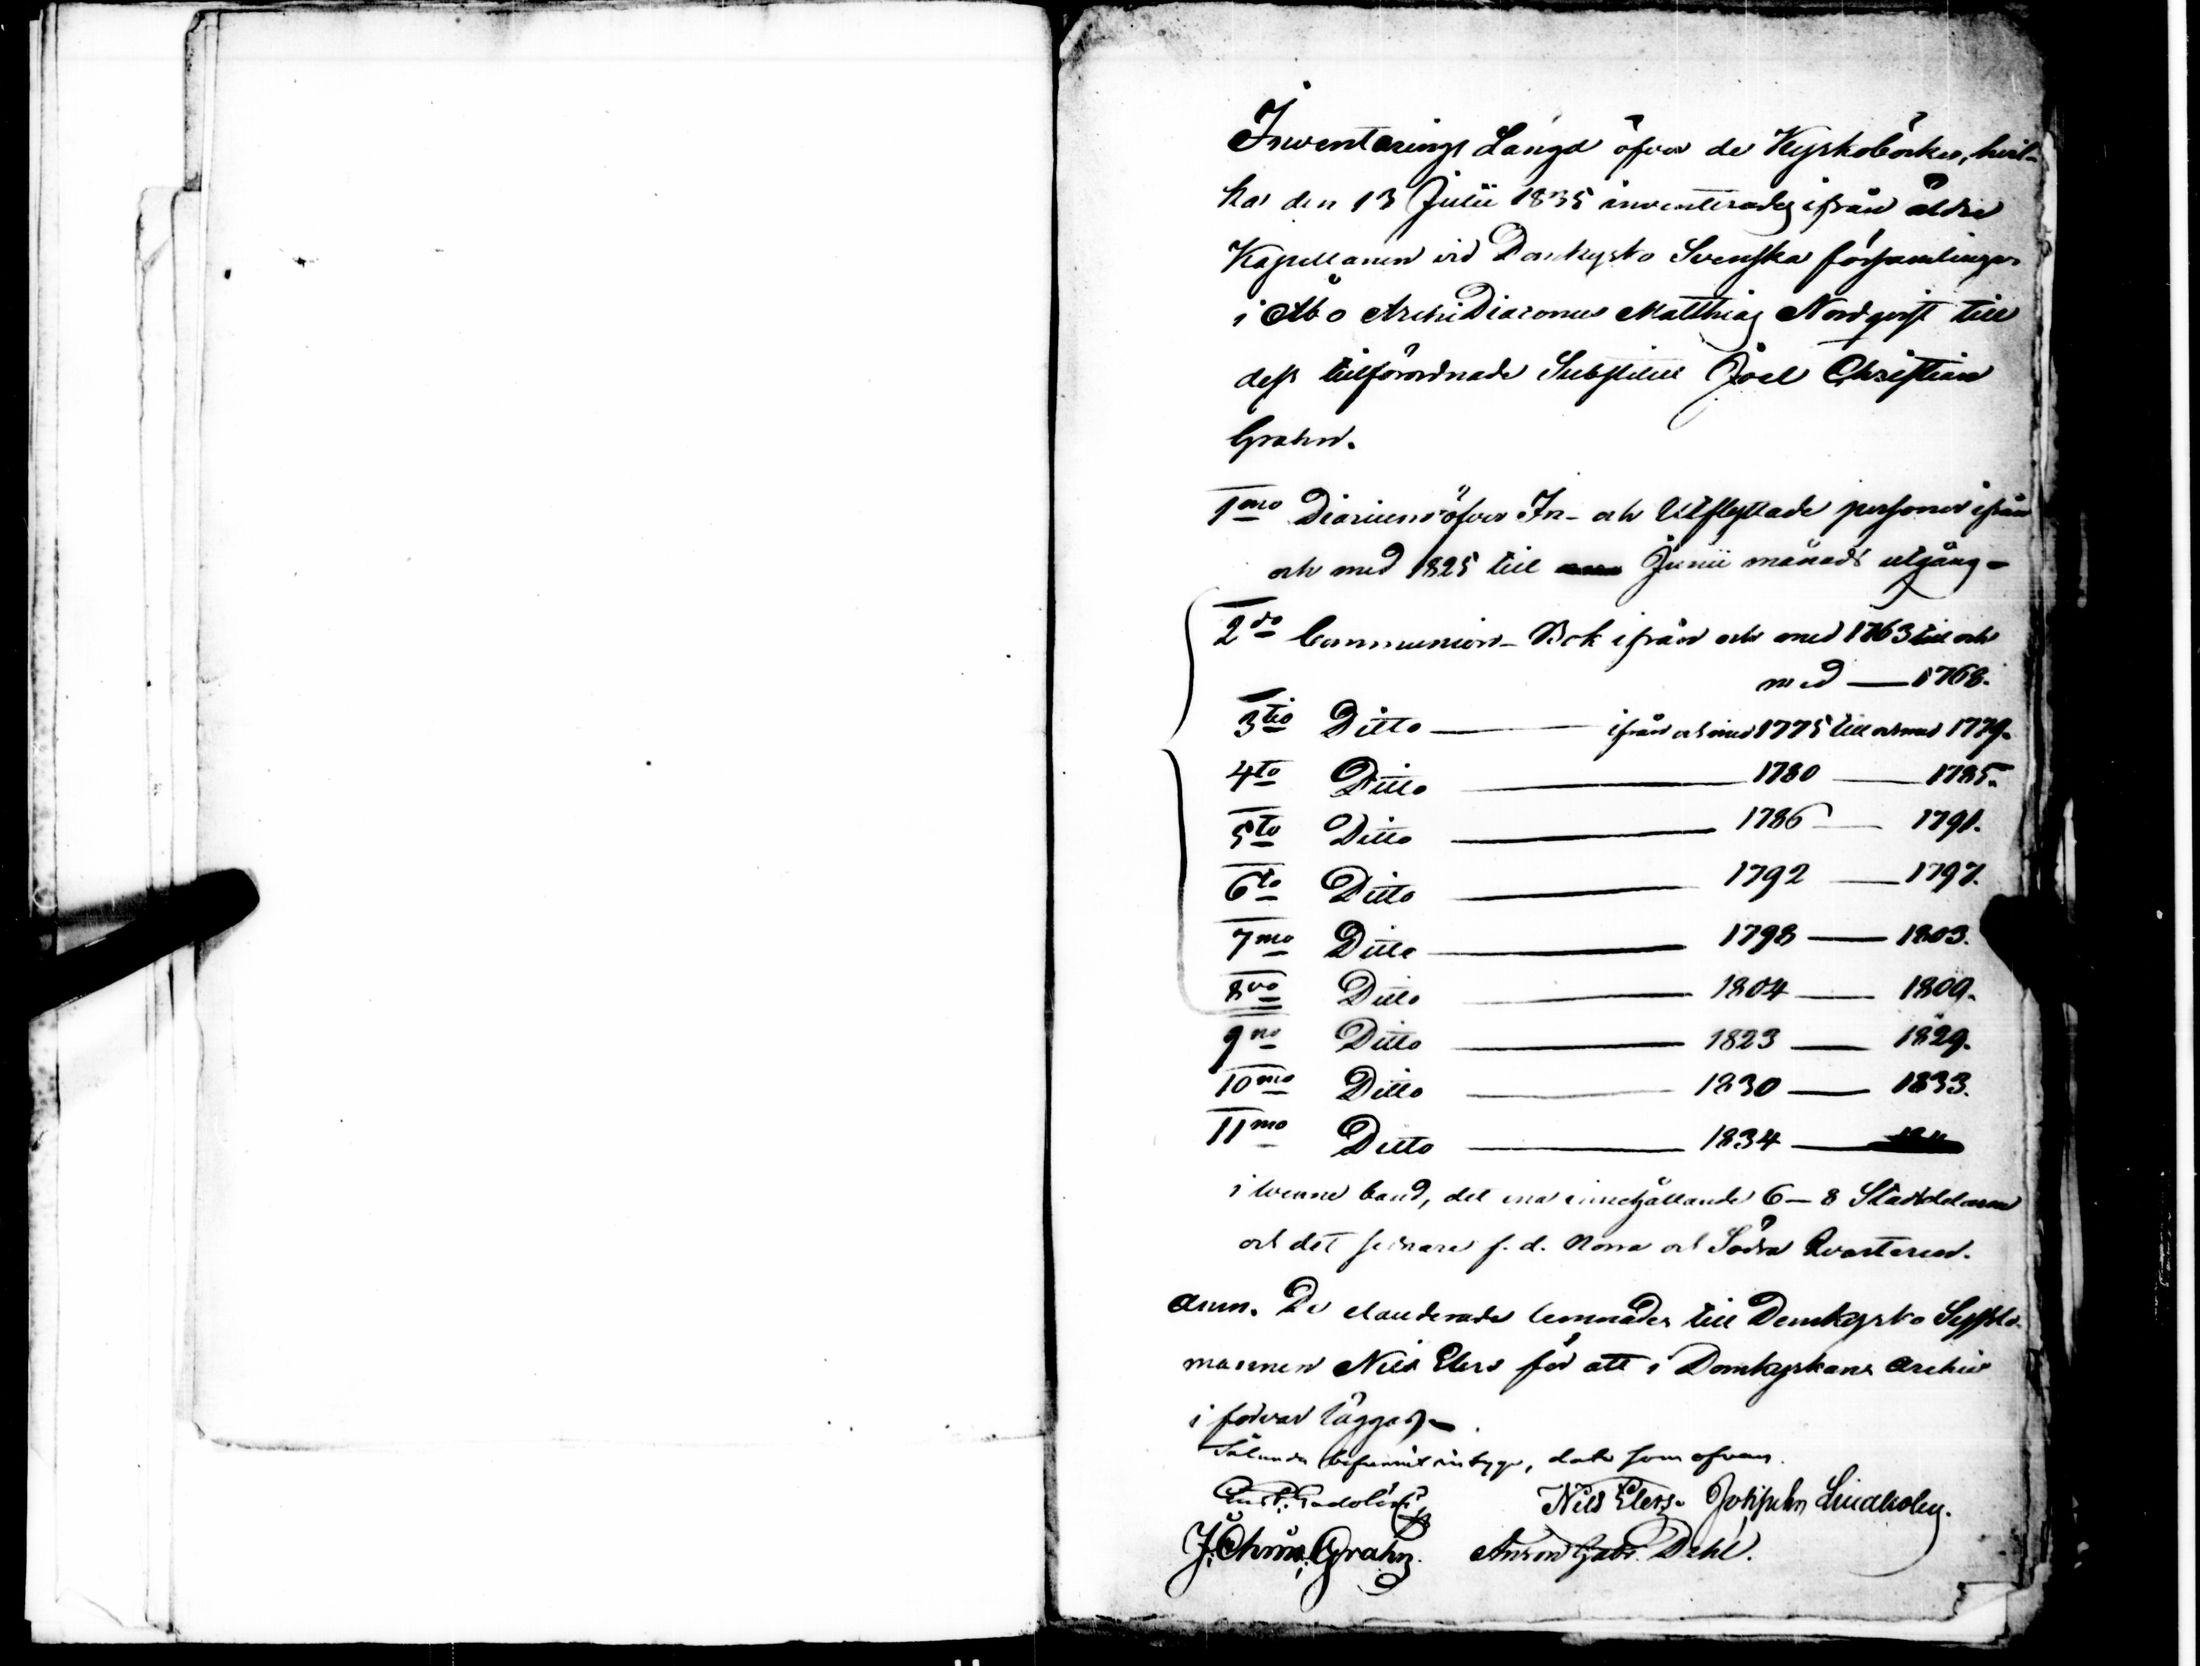 Inventerings Längd öfver de Kyrkoböcker, hvil-
ka den 13 Julii 1835 inventerades ifrån äldre
Kapellanen vid Domkyrko Svenska församlingen
i Åbo ArchiDiaconus Matthias Nordqvist till
dess tillförordnade Substitut Joel Christian
Grahn.
1mo Diarium öfver In- och Utflyttade personer ifrån
och med 1825 till Junii månads utgång -
2do Communion-Bok ifrån och med 1763 till och
med — 1768.
3tio Ditto — ifrån och med 1775 till och med 1779.
4to Ditto — 1780 — 1785.
5to Ditto — 1786 — 1791.
6to Ditto — 1792 — 1797.
7mo Ditto — 1798 — 1803.
8vo Ditto — 1804 — 1809.
9no Ditto — 1823 — 1829.
10mo Ditto — 1830 — 1833.
11mo Ditto — 1834 —
i tvenne band, det ena innehållande 6–8 Stadsdelarna
och det senare f. d. Norra och Södra Qvarteren.
Anm. De clauderade lemnades till Domkyrko Sysslo-
mannen Nils Elers för att i Domkyrkans Archiv
i förvar läggas. -
Sålunda befunnit intyga, dato som ofvan.
Gust. Gadolin Nils Elers. Josephn Lindholm.
J. Chrn. Grahn. Anton Gabr. Dahl.